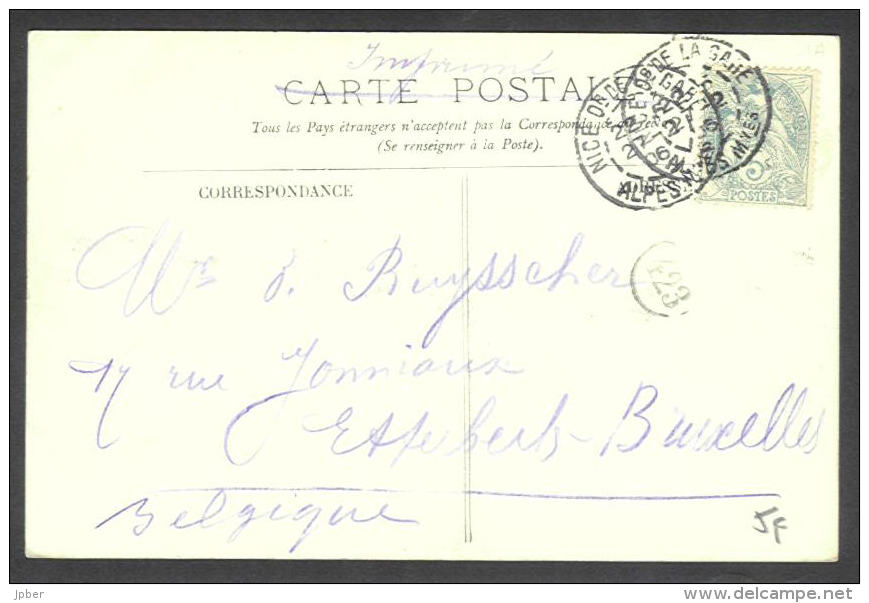 Imprimé
CARTE POSTALE
Tous les Pays étrangers n'acceptent pas la Correspondance au recto
(Se renseigner à la Poste).
CORRESPONDANCE
NICE Dᵗ DE LA GARE
ALPES Mᵐᵉˢ
5ᶜ
POSTES
423
Mʳ d. Ruysscher
17 rue Jonniaux
Etterbeck-Bruxelles
Belgique
5F
jpber
www.delcampe.net